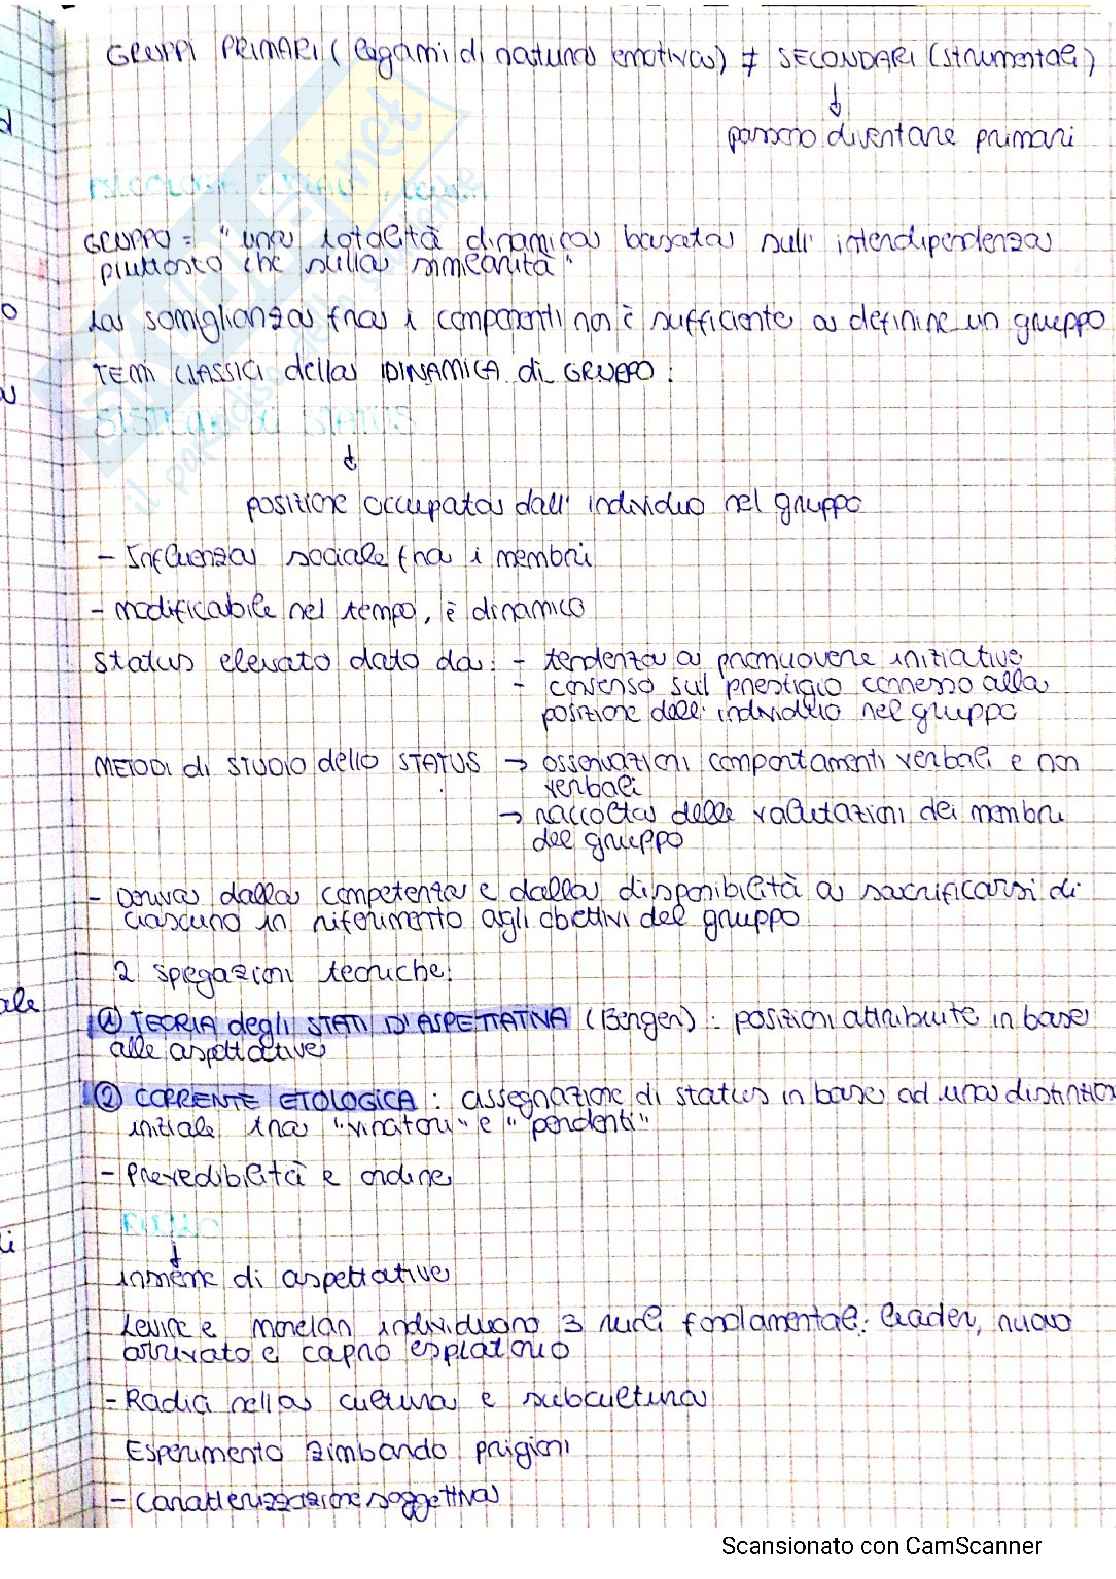 GRUPPI PRIMARI (legami di natura emotiva) ≠ SECONDARI (strumentale)
↓
possono diventare primari
GRUPPO = "una totalità dinamica basata sull'interdipendenza
piuttosto che sulla similarità"
La somiglianza fra i componenti non è sufficiente a definire un gruppo
TEMI CLASSICI della DINAMICA di GRUPPO:
SISTEMA DI STATUS
↓
posizione occupata dall'individuo nel gruppo
- Influenza sociale fra i membri
- modificabile nel tempo, è dinamico
Status elevato dato da: - tendenza a promuovere iniziative
- consenso sul prestigio connesso alla
posizione dell'individuo nel gruppo
METODI di STUDIO dello STATUS → osservazioni comportamenti verbali e non
verbali
→ raccolta delle valutazioni dei membri
del gruppo
- Deriva dalla competenza e dalla disponibilità a sacrificarsi di
ciascuno in riferimento agli obiettivi del gruppo
2 spiegazioni teoriche:
① TEORIA degli STATI D'ASPETTATIVA (Berger): posizioni attribuite in base
alle aspettative
② CORRENTE ETOLOGICA: assegnazione di status in base ad una distinzion
iniziale tra "vincitori" e "perdenti"
- Prevedibilità e ordine
RUOLO
↓
insieme di aspettative
Levine e Moreland individuano 3 ruoli fondamentali: leader, nuovo
arrivato e capro espiatorio
- Radici nella cultura e subcultura
Esperimento Zimbardo prigioni
- Caratterizzazione soggettiva
ale
SKUOLA.net
il paradiso dello studente
Scansionato con CamScanner